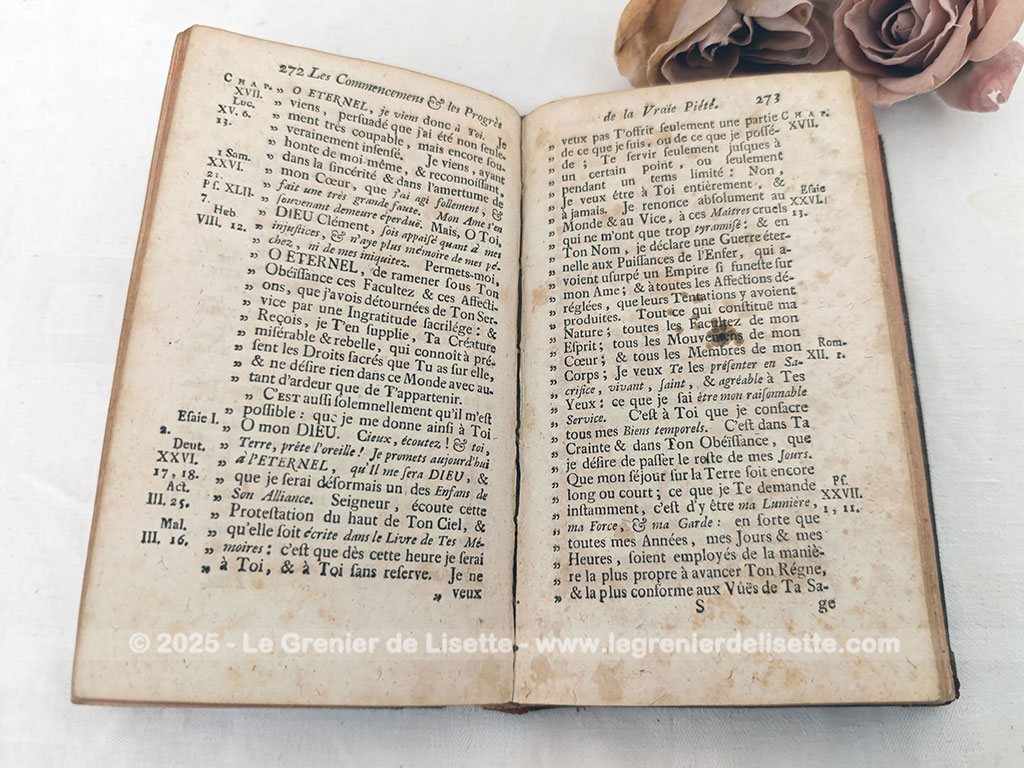 272 Les Commencemens & les Progrès
CHAP. XVII.
Luc. XV. 6. 13.
1 Sam. XXVI. 21.
Ps. XLII. 7.
Heb VIII. 12.
Esaie I. 2.
Deut. XXVI. 17, 18.
Act. III. 25.
Mal. III. 16.
„ O ETERNEL, je viens donc à Toi. Je
„ viens, persuadé que j'ai été non seule-
„ ment très coupable, mais encore sou-
„ verainement insensé. Je viens, ayant
„ honte de moi-même, & reconnoissant,
„ dans la sincérité & dans l'amertume de
„ mon Cœur, que j'ai agi follement, &
„ fait une très grande faute. Mon Ame s'en
„ souvenant demeure éperduë. Mais, O Toi,
„ DIEU Clément, sois appaisé quant à mes
„ injustices, & n'aye plus mémoire de mes pé-
„ chez, ni de mes iniquitez. Permets-moi,
„ O ETERNEL, de ramener sous Ton
„ Obéissance ces Facultez & ces Affecti-
„ ons, que j'avois détournées de Ton Ser-
„ vice par une Ingratitude sacrilége: &
„ Reçois, je T'en supplie, Ta Créature
„ misérable & rebelle, qui connoit à pré-
„ sent les Droits sacrés que Tu as sur elle,
„ & ne désire rien dans ce Monde avec au-
„ tant d'ardeur que de T'appartenir.
„ C'EST aussi solemnellement qu'il m'est
„ possible: que je me donne ainsi à Toi
„ O mon DIEU. Cieux, écoutez! & toi,
„ Terre, prête l'oreille! Je promets aujourd'hui
„ à l'ETERNEL, qu'Il me sera DIEU, &
„ que je serai désormais un des Enfans de
„ Son Alliance. Seigneur, écoute cette
„ Protestation du haut de Ton Ciel, &
„ qu'elle soit écrite dans le Livre de Tes Mé-
„ moires: c'est que dès cette heure je serai
„ à Toi, & à Toi sans reserve. Je ne
„ veux
de la Vraie Piété. 273
CHAP. XVII.
Esaie XXVI. 13.
Rom. XII. 1.
Ps. XXVII. 1, 11.
„ veux pas T'offrir seulement une partie
„ de ce que je suis, ou de ce que je possé-
„ de; Te servir seulement jusques à
„ un certain point, ou seulement
„ pendant un tems limité: Non,
„ Je veux être à Toi entièrement, &
„ à jamais. Je renonce absolument au
„ Monde & au Vice, à ces Maîtres cruels
„ qui ne m'ont que trop tyrannisé: & en
„ Ton Nom, je déclare une Guerre éter-
„ nelle aux Puissances de l'Enfer, qui a-
„ voient usurpé un Empire si funeste sur
„ mon Ame; & à toutes les Affections dé-
„ réglées, que leurs Tentations y avoient
„ produites. Tout ce qui constituë ma
„ Nature; toutes les Facultez de mon
„ Esprit; tous les Mouvemens de mon
„ Cœur; & tous les Membres de mon
„ Corps; Je veux Te les présenter en Sa-
„ crifice, vivant, saint, & agréable à Tes
„ Yeux: ce que je sai être mon raisonnable
„ Service. C'est à Toi que je consacre
„ tous mes Biens temporels. C'est dans Ta
„ Crainte & dans Ton Obéissance, que
„ je désire de passer le reste de mes Jours.
„ Que mon séjour sur la Terre soit encore
„ long ou court; ce que je Te demande
„ instamment, c'est d'y être ma Lumière,
„ ma Force, & ma Garde: en sorte que
„ toutes mes Années, mes Jours & mes
„ Heures, soient employés de la maniè-
„ re la plus propre à avancer Ton Régne,
„ & la plus conforme aux Vûës de Ta Sa-
S ge
© 2025 - Le Grenier de Lisette - www.legrenierdelisette.com